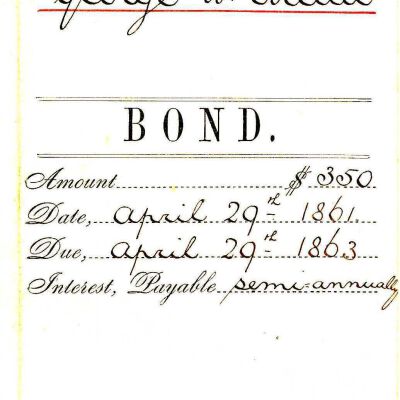 George
BOND.
Amount $350
Date, April 29th 1861.
Due, April 29th 1863
Interest, Payable semi-annually